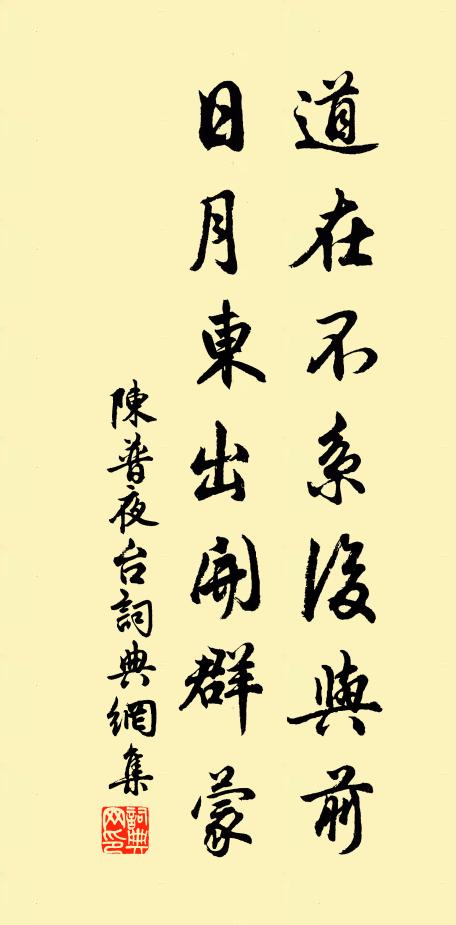 道在不系後與前
日月東出開群蒙
陳普夜台詞典網集
詞典网印